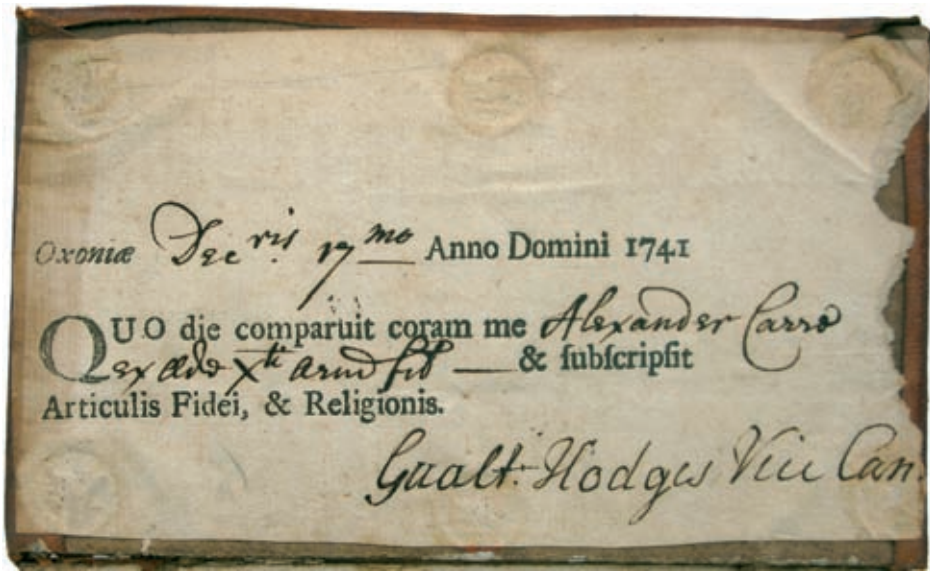 Oxoniæ Dec^ris 17^mo Anno Domini 1741
QUO die comparuit coram me Alexander Carre
ex æde X^ti arm fil — & ſubſcripſit
Articulis Fidei, & Religionis.
Gualt. Hodges Vice Can.